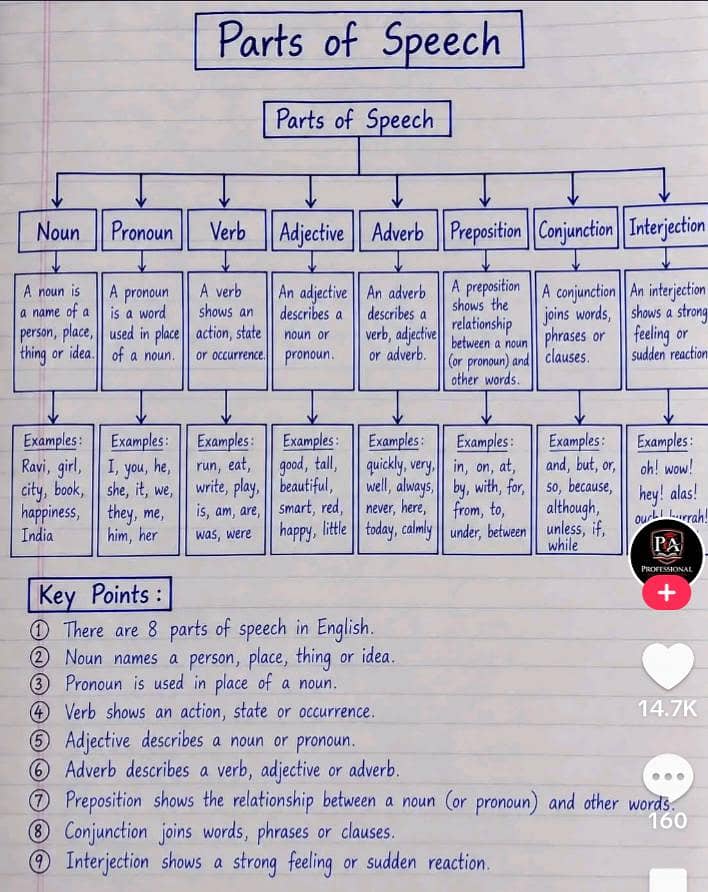 Parts of Speech
Parts of Speech
Noun
Pronoun
Verb
Adjective
Adverb
Preposition
Conjunction
Interjection
A noun is
a name of a
person, place,
thing or idea.
A pronoun
is a word
used in place
of a noun.
A verb
shows an
action, state
or occurrence.
An adjective
describes a
noun or
pronoun.
An adverb
describes a
verb, adjective
or adverb.
A preposition
shows the
relationship
between a noun
(or pronoun) and
other words.
A conjunction
joins words,
phrases or
clauses.
An interjection
shows a strong
feeling or
sudden reaction
Examples:
Ravi, girl,
city, book,
happiness,
India
Examples:
I, you, he,
she, it, we,
they, me,
him, her
Examples:
run, eat,
write, play,
is, am, are,
was, were
Examples:
good, tall,
beautiful,
smart, red,
happy, little
Examples:
quickly, very,
well, always,
never, here,
today, calmly
Examples:
in, on, at,
by, with, for,
from, to,
under, between
Examples:
and, but, or,
so, because,
although,
unless, if,
while
Examples:
oh! wow!
hey! alas!
PA
PROFESSIONAL
+
14.7K
160
Key Points:
① There are 8 parts of speech in English.
② Noun names a person, place, thing or idea.
③ Pronoun is used in place of a noun.
④ Verb shows an action, state or occurrence.
⑤ Adjective describes a noun or pronoun.
⑥ Adverb describes a verb, adjective or adverb.
⑦ Preposition shows the relationship between a noun (or pronoun) and other words.
⑧ Conjunction joins words, phrases or clauses.
⑨ Interjection shows a strong feeling or sudden reaction.